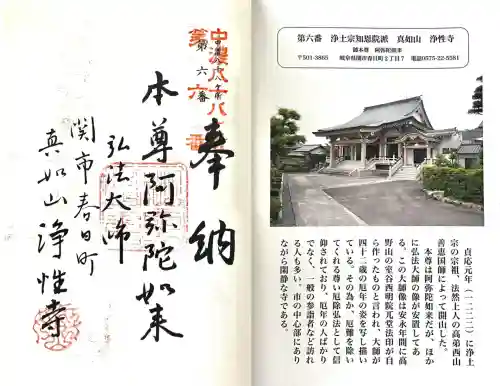 中濃八十八
第六番
第六番
奉納
本尊阿弥陀如来
弘法大師
関市春日町
真如山 浄性寺
第六番 浄土宗知恩院派 真如山 浄性寺
御本尊 阿弥陀如来
〒501-3865 岐阜県関市春日町2丁目7 電話0575-22-5581
貞応元年(一二二二)に浄土
宗の宗祖、法然上人の高弟西山
善恵国師によって開山した。
本尊は阿弥陀如来だが、ほか
に弘法大師の像が安置してあ
る。この大師像は安永年間に高
野山の室谷西明院元堂法印が自
ら作ったものと言われ、大師が
四十二歳の厄年の姿を写し描い
ていてその為か、厄難を除い
てくれる尊い厄除弘法として信
仰されており、厄年の人ばかり
でなく、一般の参詣者など訪れ
る人も多い、市の中心部にあり
ながら閑静な寺である。